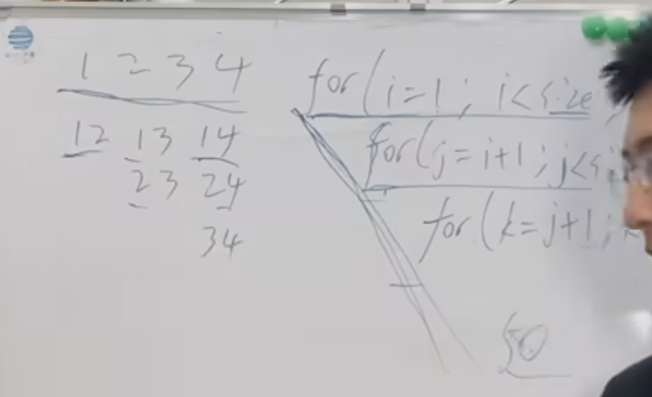 1 2 3 4
12 13 14
23 24
34
for(i=1; i<size
for(j=i+1; j<si
for(k=j+1;
50